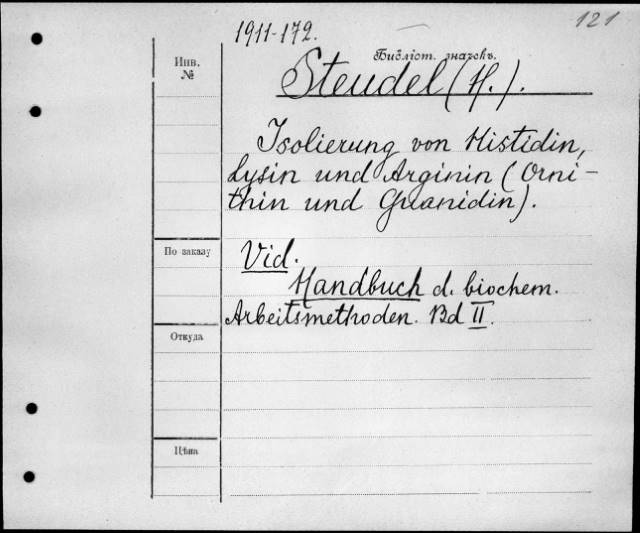 121
1911-172.
Библіот. значокъ.
Инв.
№
Steudel (H.).
Isolierung von Histidin,
Lysin und Arginin (Orni-
thin und Guanidin).
По заказу
Vid.
Handbuch d. biochem.
Arbeitsmethoden. Bd II.
Откуда
Цѣна